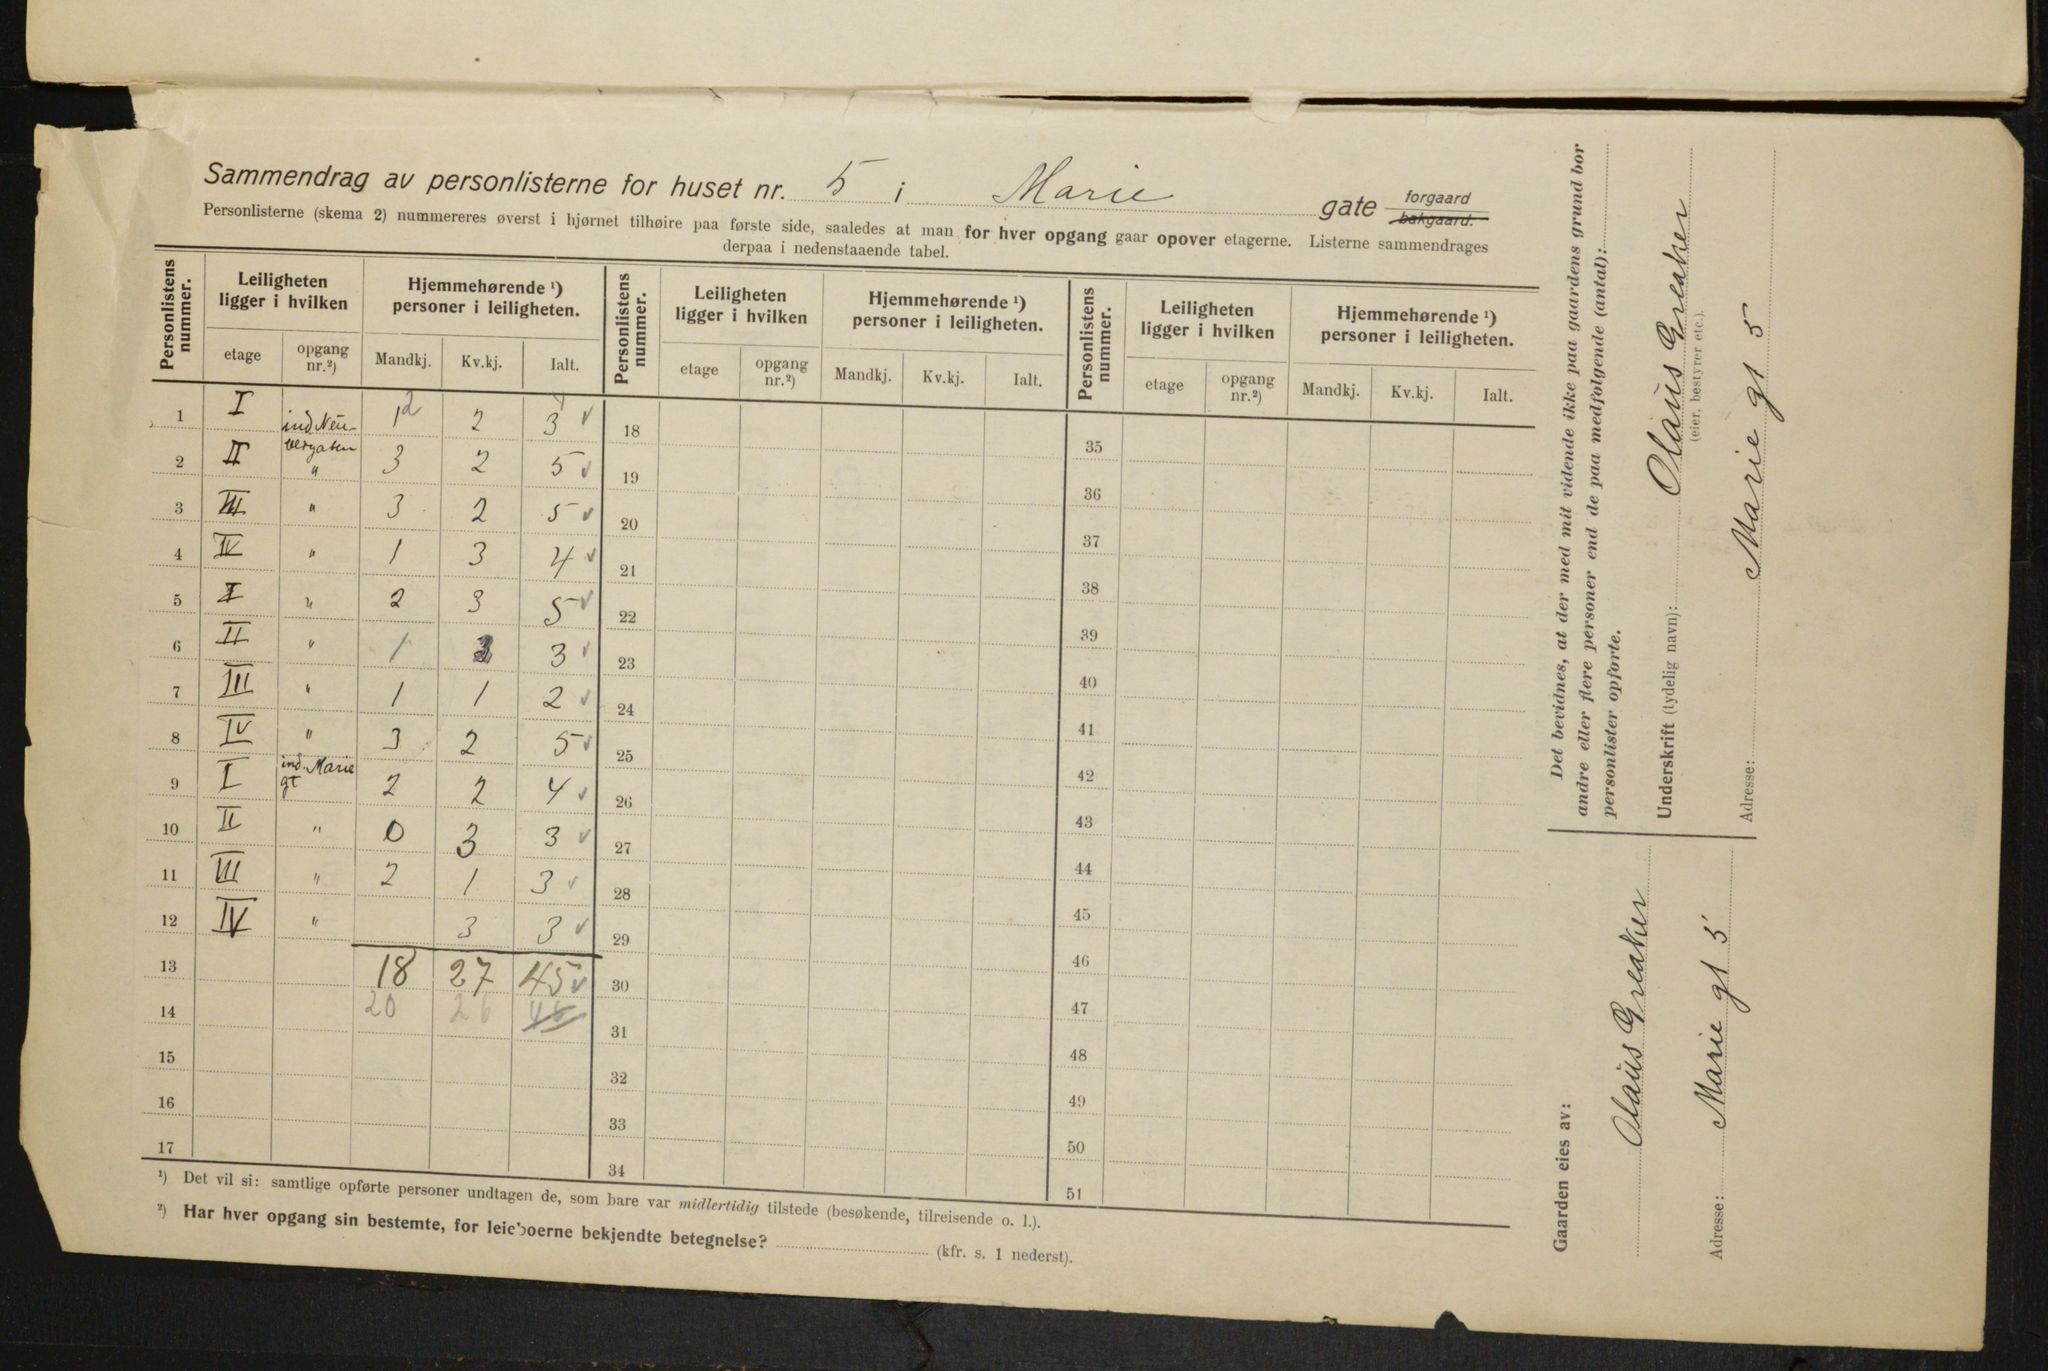 Sammendrag av personlisterne for huset nr. 5 i Marie gate forgaard bakgaard.
Personlisterne (skema 2) nummereres øverst i hjørnet tilhøire paa første side, saaledes at man for hver opgang gaar opover etagerne. Listerne sammendrages
derpaa i nedenstaaende tabel.
Personlistens nummer. Leiligheten ligger i hvilken Hjemmehørende ¹) personer i leiligheten. Personlistens nummer. Leiligheten ligger i hvilken Hjemmehørende ¹) personer i leiligheten. Personlistens nummer. Leiligheten ligger i hvilken Hjemmehørende ¹) personer i leiligheten.
etage opgang nr.²) Mandkj. Kv.kj. Ialt. etage opgang nr.²) Mandkj. Kv.kj. Ialt. etage opgang nr.²) Mandkj. Kv.kj. Ialt.
1 I ind. Neu- 1 2 2 3 ✓ 18 35
bergaten
2 II " 3 2 5 ✓ 19 36
3 III " 3 2 5 ✓ 20 37
4 IV " 1 3 4 ✓ 21 38
5 I " 2 3 5 ✓ 22 39
6 II " 1 3 ✓ 23 40
7 III " 1 1 2 ✓ 24 41
8 IV " 3 2 5 ✓ 25 42
9 I ind. Marie gt 2 2 4 ✓ 26 43
10 II " 0 3 3 ✓ 27 44
11 III " 2 1 3 ✓ 28 45
12 IV " 3 3 ✓ 29 46
13 18 27 45 ✓ 30 47
14 20 26 46 31 48
15 32 49
16 33 50
17 34 51
¹) Det vil si: samtlige opførte personer undtagen de, som bare var midlertidig tilstede (besøkende, tilreisende o. l.).
²) Har hver opgang sin bestemte, for leieboerne bekjendte betegnelse? (kfr. s. 1 nederst).
Det bevidnes, at der med mit vidende ikke paa gaardens grund bor
andre eller flere personer end de paa medfølgende (antal):
personlister opførte.
Underskrift (tydelig navn): Olaus Greaker
(eier, bestyrer etc.).
Adresse: Marie gt 5
Gaarden eies av:
Olaus Greaker
Adresse: Marie gt 5